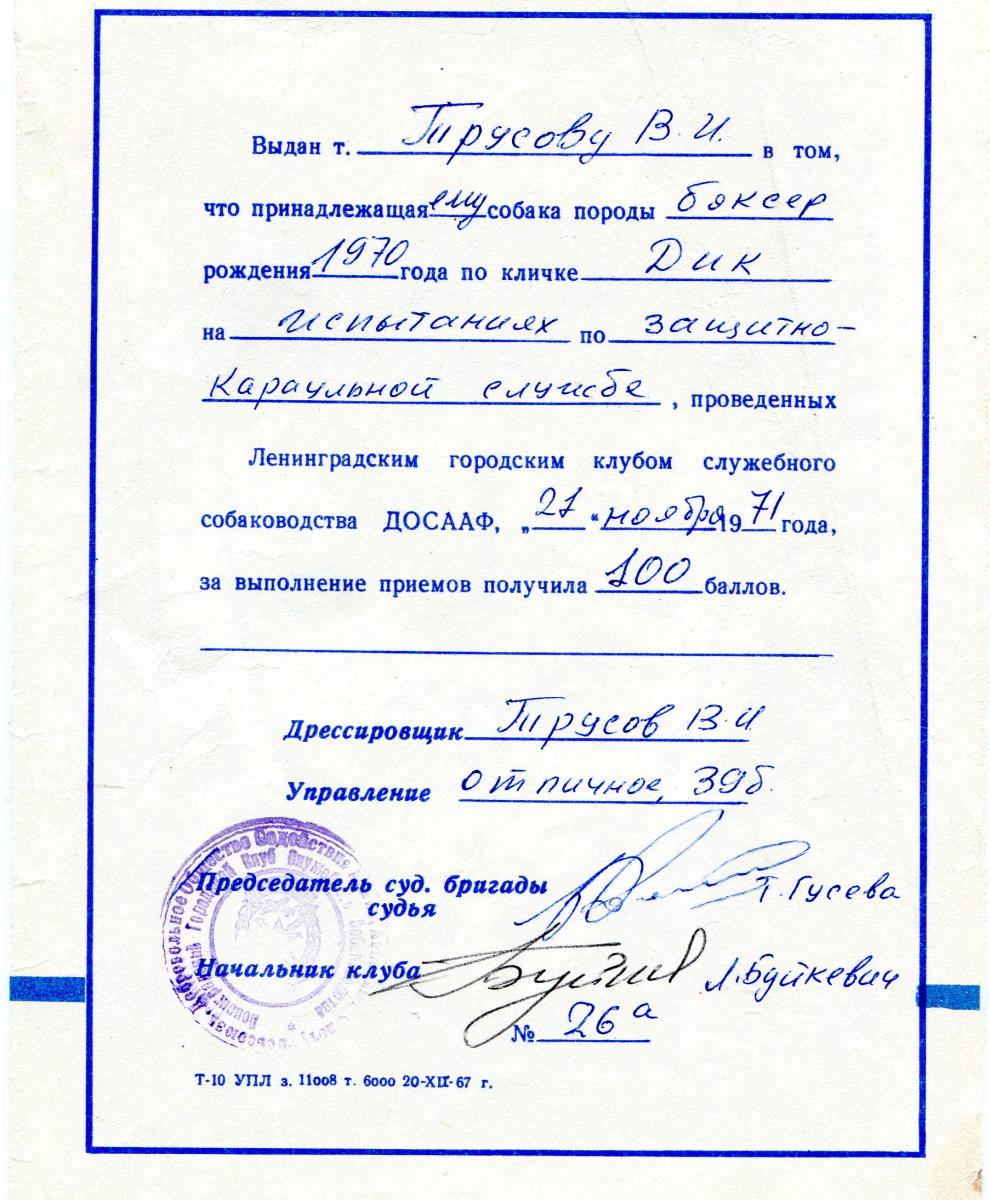 Выдан т. Трусову В.И. в том,
что принадлежащая ему собака породы боксер
рождения 1970 года по кличке Дик
на испытаниях по защитно-
караульной службе, проведенных
Ленинградским городским клубом служебного
собаководства ДОСААФ, „21“ ноября 1971 года,
за выполнение приемов получила 100 баллов.
Дрессировщик Трусов В.И
Управление отличное, 39б.
Председатель суд. бригады
судья Т. Гусева
Начальник клуба Л. Буйкевич
№ 26а
Добровольное Общество Содействия
Городской Клуб
Т-10 УПЛ з. 11008 т. 6000 20-XII-67 г.